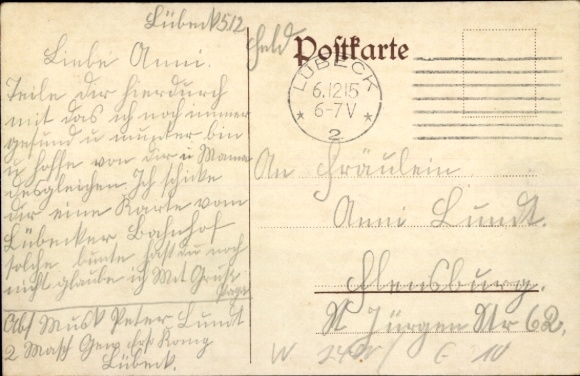 Lübeck 5/12
Liebe Anni.
Teile dir hierdurch
mit das ich noch immer
gesund u munter bin
u hoffe von dir u Mama
desgleichen. Ich schicke
dir eine Karte vom
Lübecker Bahnhof
solche bunte hast du noch
nicht glaube ich Mit Gruß
Papa
Abs Musk Peter Lundt
2 Masch Gew
Lübeck.
Feld Postkarte
LÜBECK
6.12.15
6-7V
2
An Fräulein
Anni Lundt.
Flensburg.
St Jürgen Str 62.